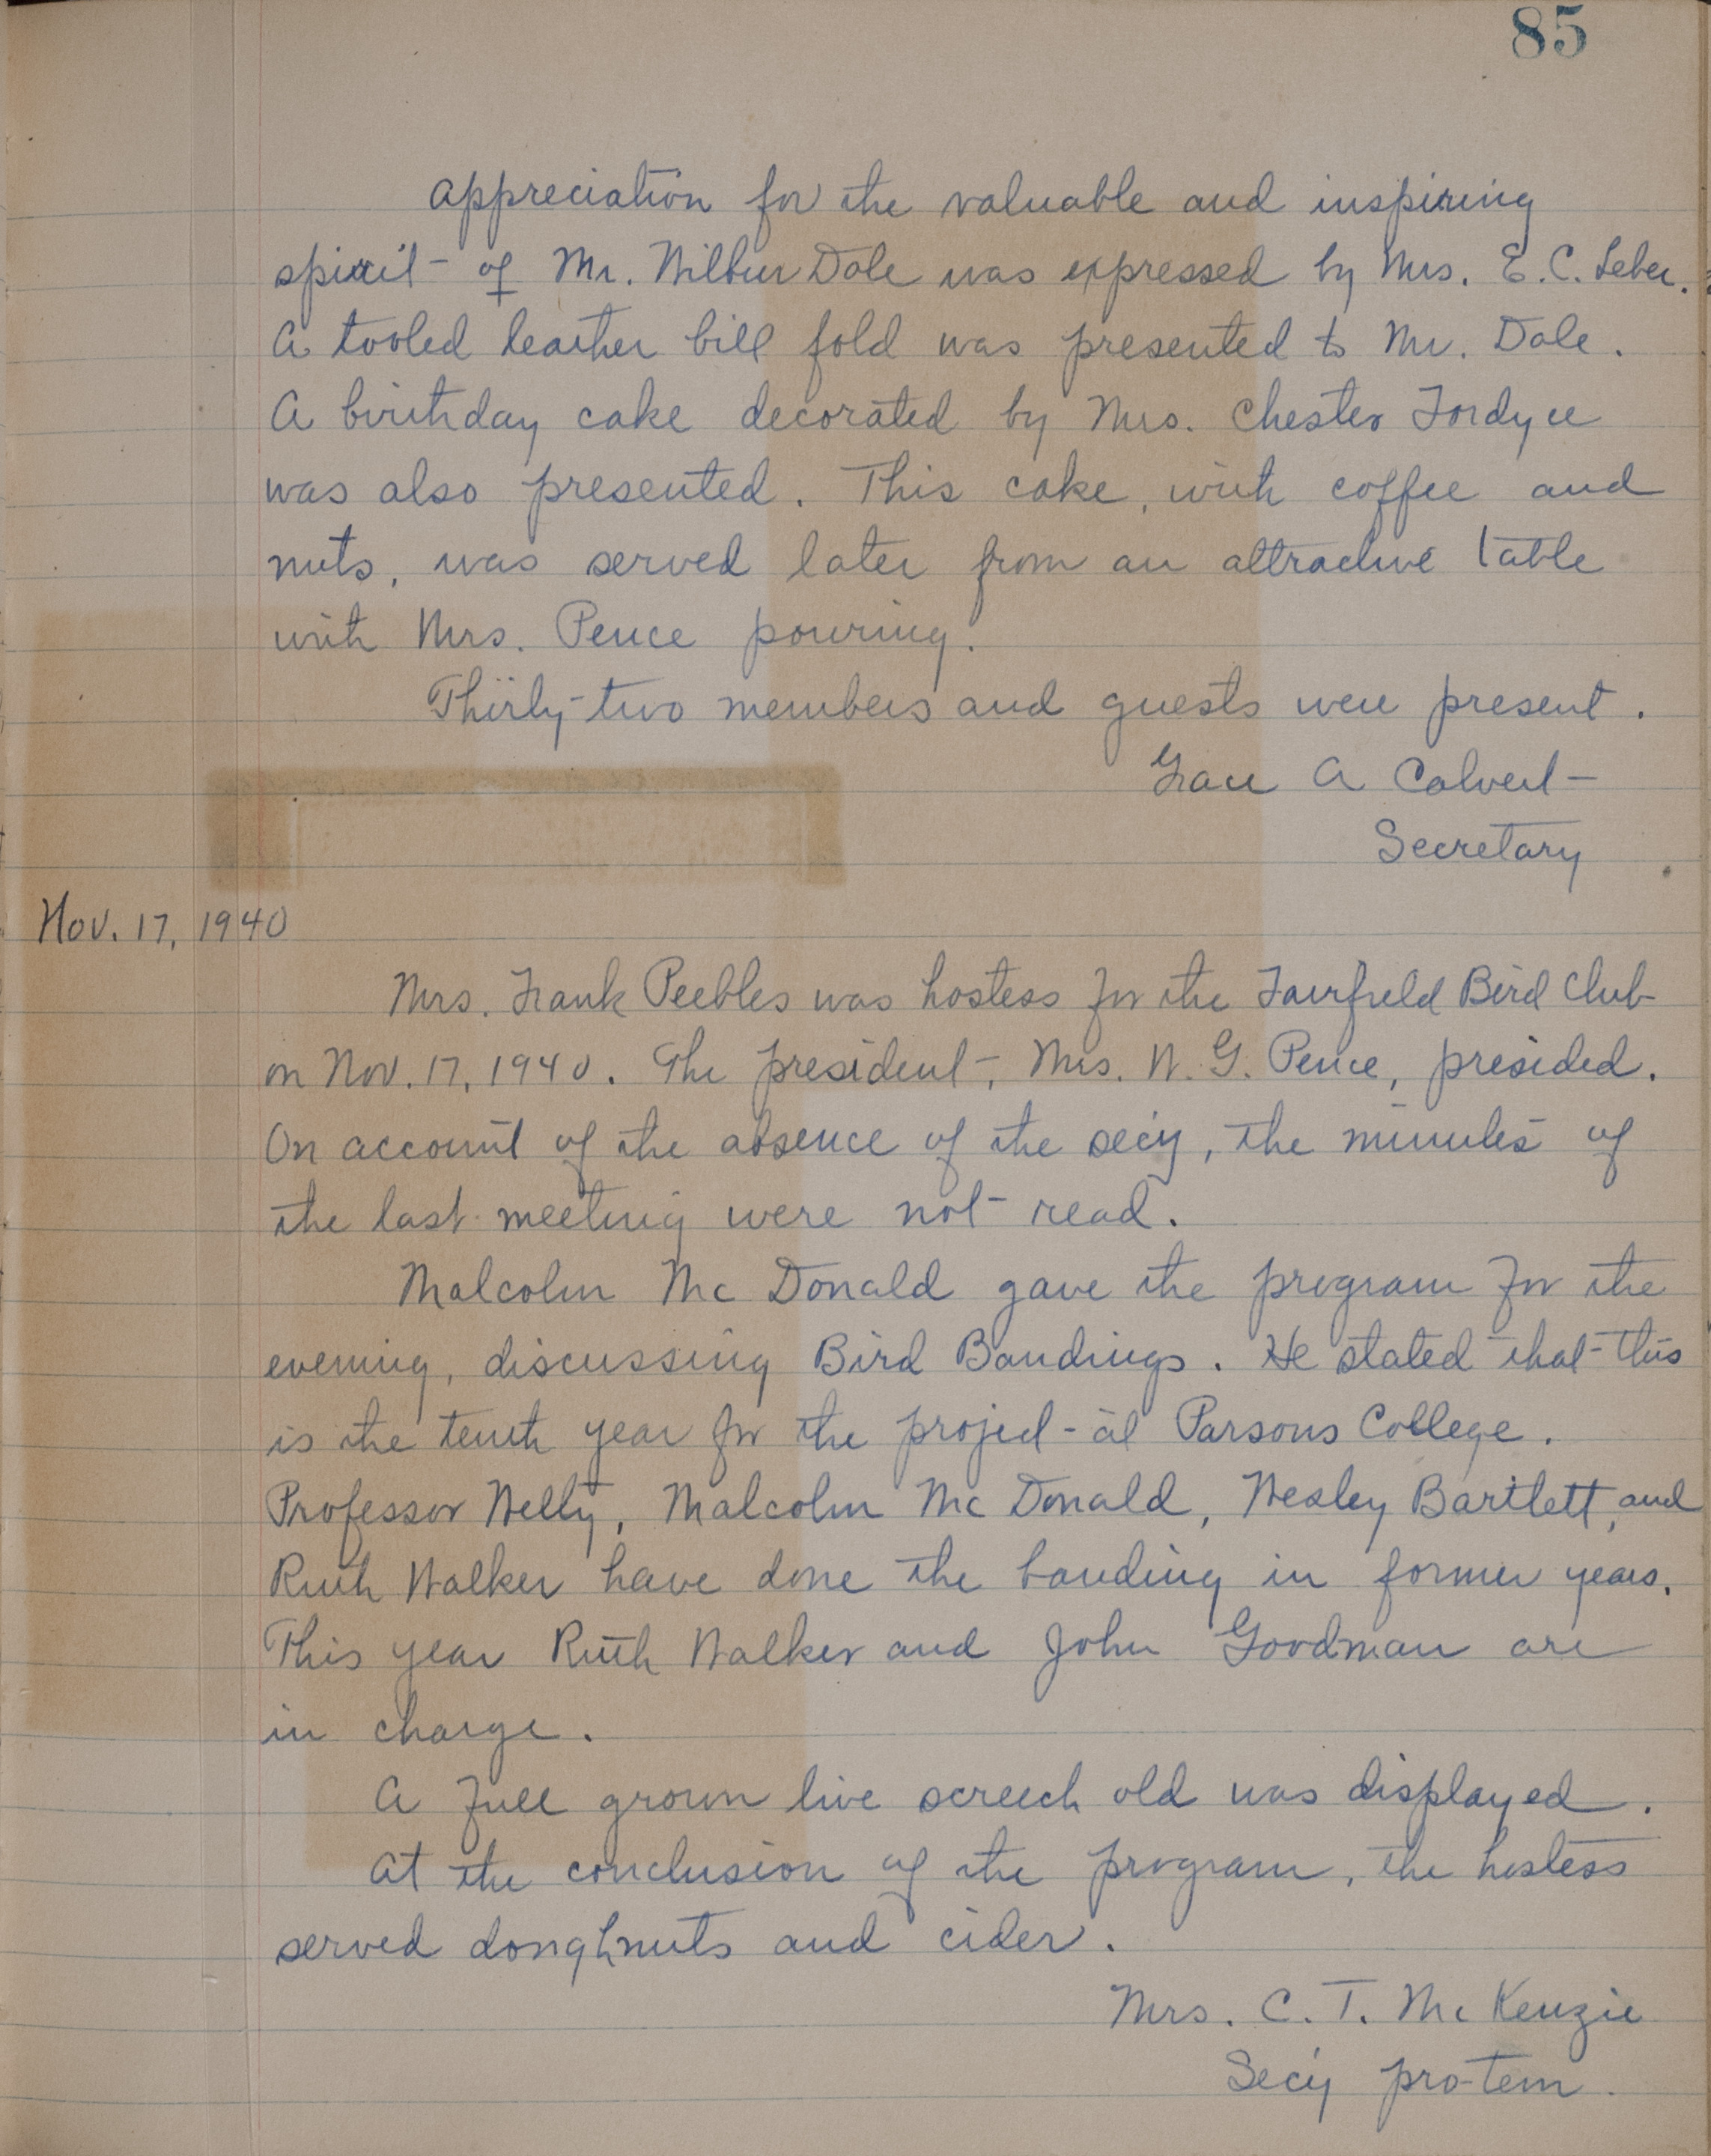 85
appreciation for the valuable and inspiring
spirit of Mr. Wilbur Dole was expressed by Mrs. E. C. Leber.
A tooled leather bill fold was presented to Mr. Dole.
A birthday cake decorated by Mrs. Chester Fordyce
was also presented. This cake, with coffee and
nuts, was served later from an attractive table
with Mrs. Pence pouring.
Thirty-two members and guests were present.
Grace A Calvert
Secretary
Nov. 17, 1940
Mrs. Frank Peebles was hostess for the Fairfield Bird Club
on Nov. 17, 1940. The president, Mrs. W. G. Pence, presided.
On account of the absence of the secy, the minutes of
the last meeting were not read.
Malcolm McDonald gave the program for the
evening, discussing Bird Bandings. He stated that this
is the tenth year for the project at Parsons College.
Professor Welty, Malcolm McDonald, Wesley Bartlett, and
Ruth Walker have done the banding in former years.
This year Ruth Walker and John Goodman are
in charge.
A full grown live screech old was displayed.
At the conclusion of the program, the hostess
served doughnuts and cider.
Mrs. C. T. McKenzie
Secy pro-tem.